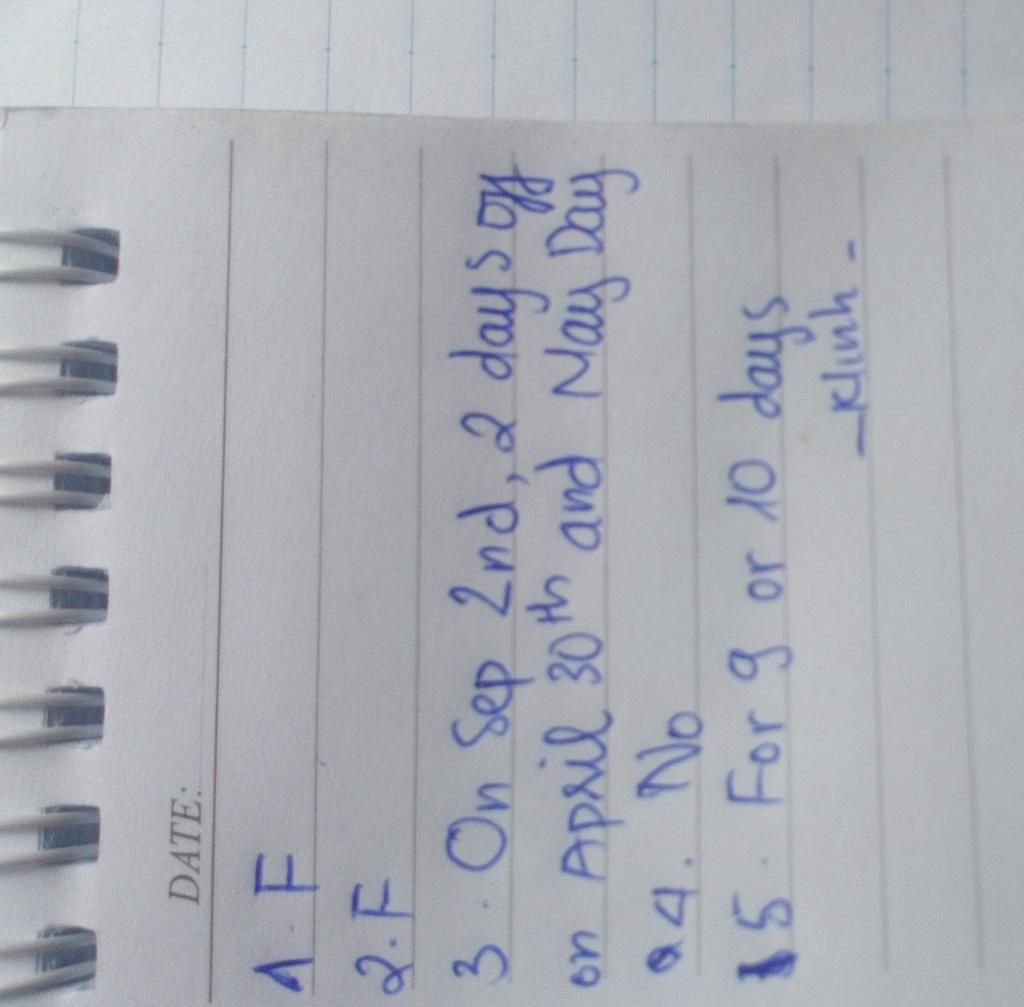 DATE:
1. F
2. F
3. On Sep 2nd, 2 days off
on April 30th and May Day
4. No
5. For 9 or 10 days
- Klinh -